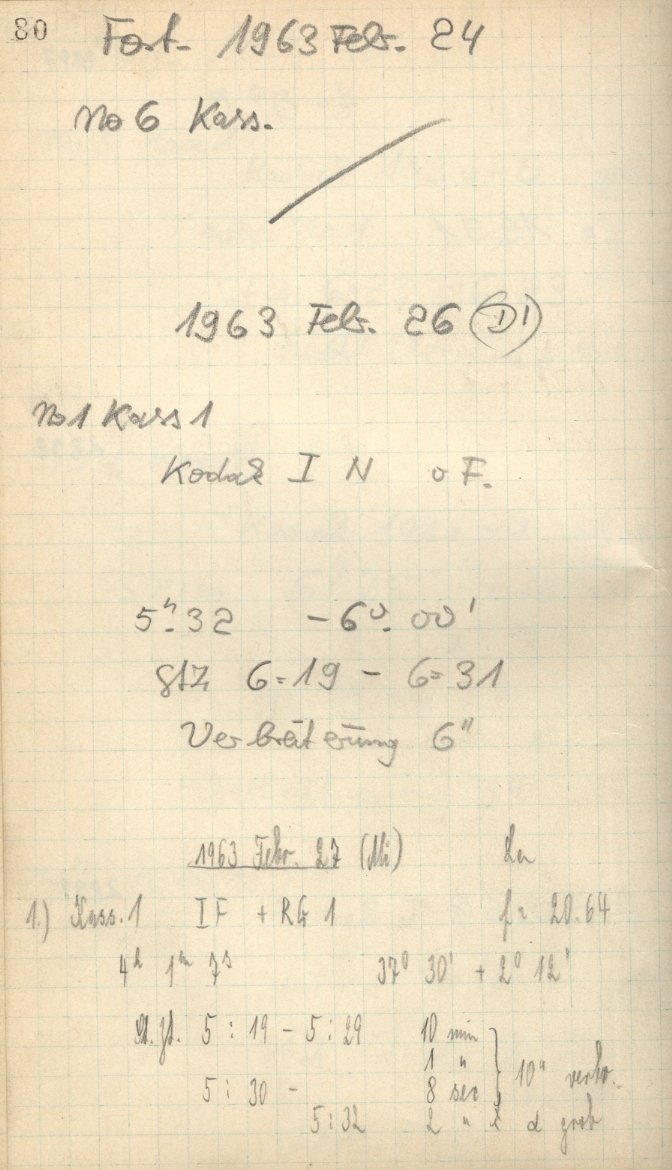 80 Fort. 1963 Febr. 24
No 6 Kass.
1963 Febr. 26 (DI)
No 1 Kass 1
Kodak I N o F.
5h.32 -6°.00'
StZ 6=19 - 6=31
Verbreiterung 6"
1963 Febr. 27 (Mi)
1.) Kass. 1 IF + RG 1 f= 20.64
4h 1m 7s 37° 30' + 2° 12'
St. Zt. 5 : 19 - 5 : 29 10 min
1 "
5 : 30 - 8 sec } 10" verbr.
5:32 2 " α grob